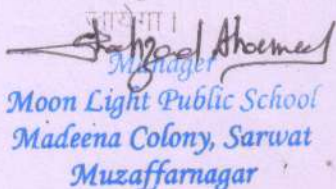 जायेगा।
Shahzad Ahmed
Manager
Moon Light Public School
Madeena Colony, Sarwat
Muzaffarnagar